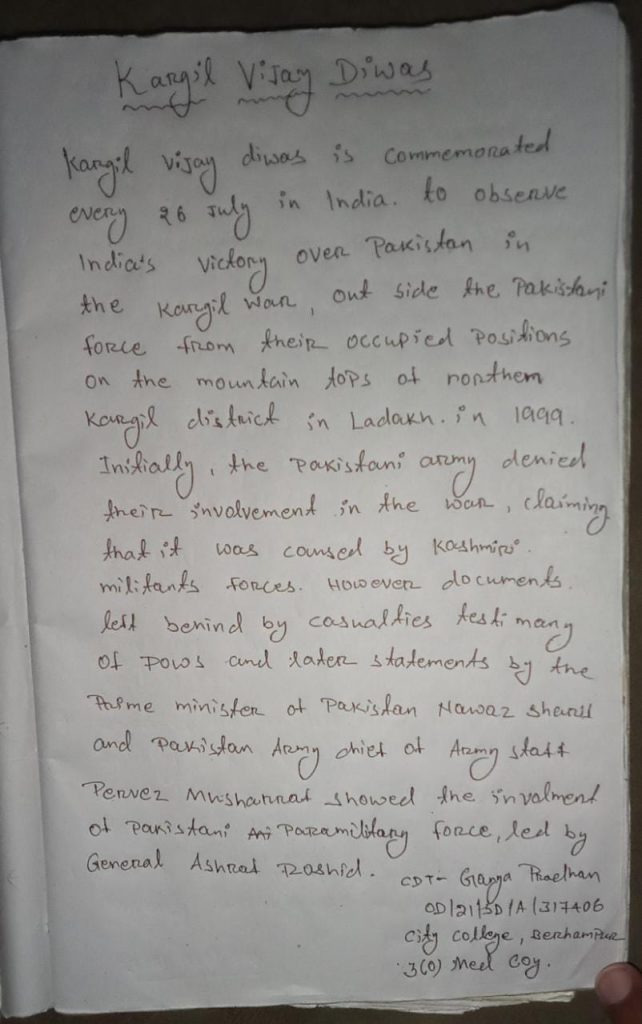 Kargil Vijay Diwas
Kargil Vijay diwas is commemorated
every 26 July in India. to observe
India's victory over Pakistan in
the Kargil war, out side the Pakistani
force from their occupied positions
on the mountain tops of northern
Kargil district in Ladakh. in 1999.
Initially, the Pakistani army denied
their involvement in the war, claiming
that it was caused by Kashmiri
militants forces. However documents
left behind by casualties testimany
of POWs and later statements by the
Prime minister of Pakistan Nawaz sharif
and Pakistan Army chief of Army staff
Pervez Musharraf showed the involment
of Pakistani Paramilitary force, led by
General Ashraf Rashid.
CDT- Ganga Pradhan
OD/21/SD/A/317406
City college, Berhampur
3(O) Med Coy.